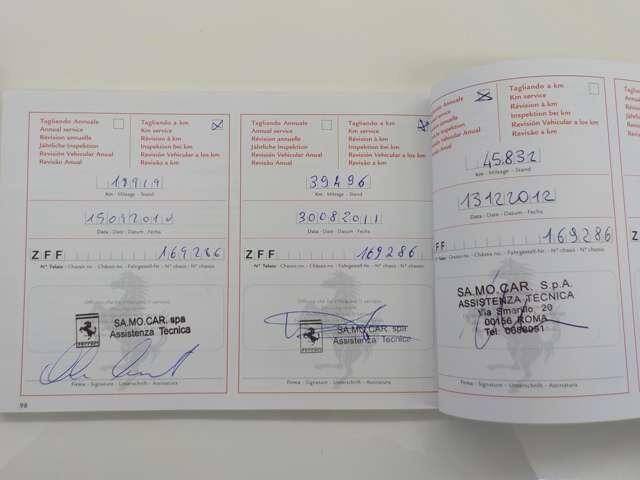 Tagliando Annuale
Annual service
Révision annuelle
Jährliche Inspektion
Revisión Vehicular Anual
Revisão Anual
Tagliando a km
Km service
Révision à km
Inspektion bei km
Revisión Vehicular a los km
Revisão a km
Km - Mileage - Stand
Data - Date - Datum - Fecha
ZFF 169286
N° Telaio - Chassis no. - Châssis no. - Fahrgestell-Nr. - N° chasis - N° chassis
SA.MO.CAR. spa
Assistenza Tecnica
Firma - Signature - Unterschrift - Assinatura
98
Tagliando Annuale
Annual service
Révision annuelle
Jährliche Inspektion
Revisión Vehicular Anual
Revisão Anual
Tagliando a km
Km service
Révision à km
Inspektion bei km
Revisión Vehicular a los km
Revisão a km
39496
Km - Mileage - Stand
30082011
Data - Date - Datum - Fecha
ZFF 169286
N° Telaio - Chassis no. - Châssis no. - Fahrgestell-Nr. - N° chasis - N° chassis
SA.MO.CAR. spa
Assistenza Tecnica
Firma - Signature - Unterschrift - Assinatura
Tagliando Annuale
Annual service
Révision annuelle
Jährliche Inspektion
Revisión Vehicular Anual
Revisão Anual
Tagliando a km
Km service
Révision à km
Inspektion bei km
Revisión Vehicular a los km
Revisão a km
45.832
Km - Mileage - Stand
13122012
Data - Date - Datum - Fecha
ZFF 169286
N° Telaio - Chassis no. - Châssis no. - Fahrgestell-Nr. - N° chasis - N° chassis
SA.MO.CAR. S.p.A.
ASSISTENZA TECNICA
Via Smerillo, 20
00156 ROMA
Firma - Signature - Unterschrift - Assinatura